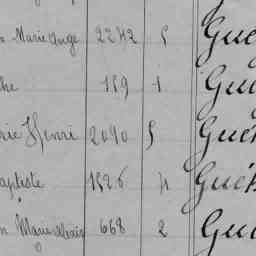 Marie Ange 2242 5 Gué
che 159 1 Gué
rie Henri 2090 5 Gué
aptiste 1526 4 Gué
n Marie Alexis 668 2 Gué